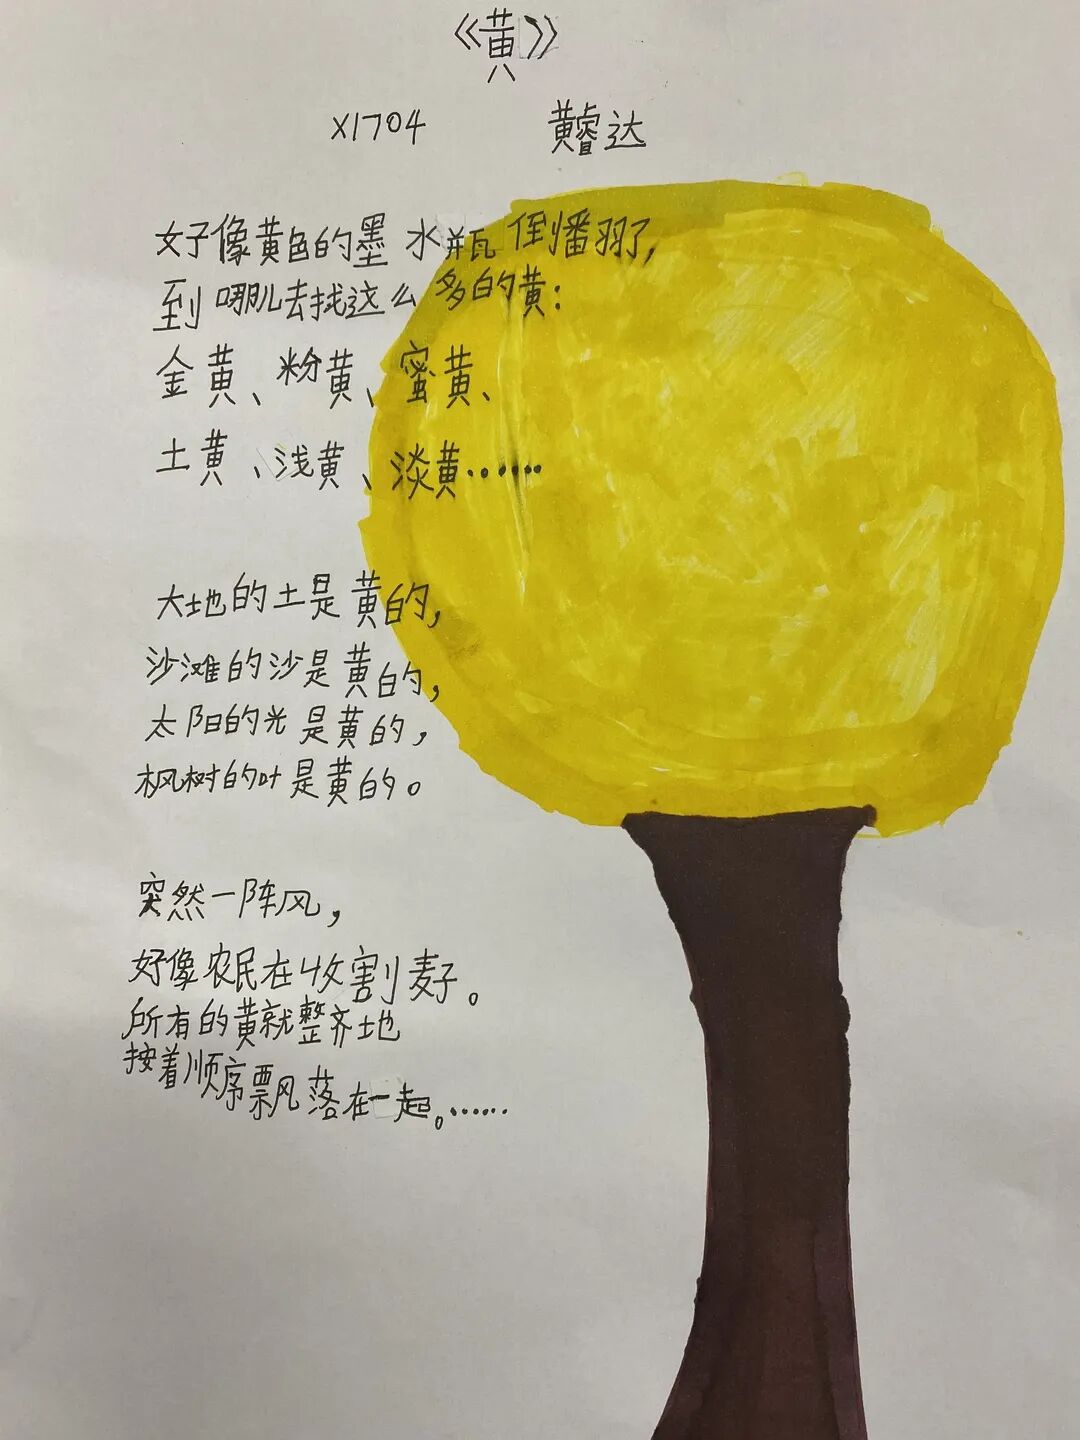 《黄》
X1704 黄睿达
好像黄色的墨水瓶倒翻了,
到哪儿去找这么多的黄:
金黄、粉黄、蜜黄、
土黄、浅黄、淡黄……
大地的土是黄的,
沙滩的沙是黄的,
太阳的光是黄的,
枫树的叶是黄的。
突然一阵风,
好像农民在收割麦子。
所有的黄就整齐地
按着顺序飘落在一起。……